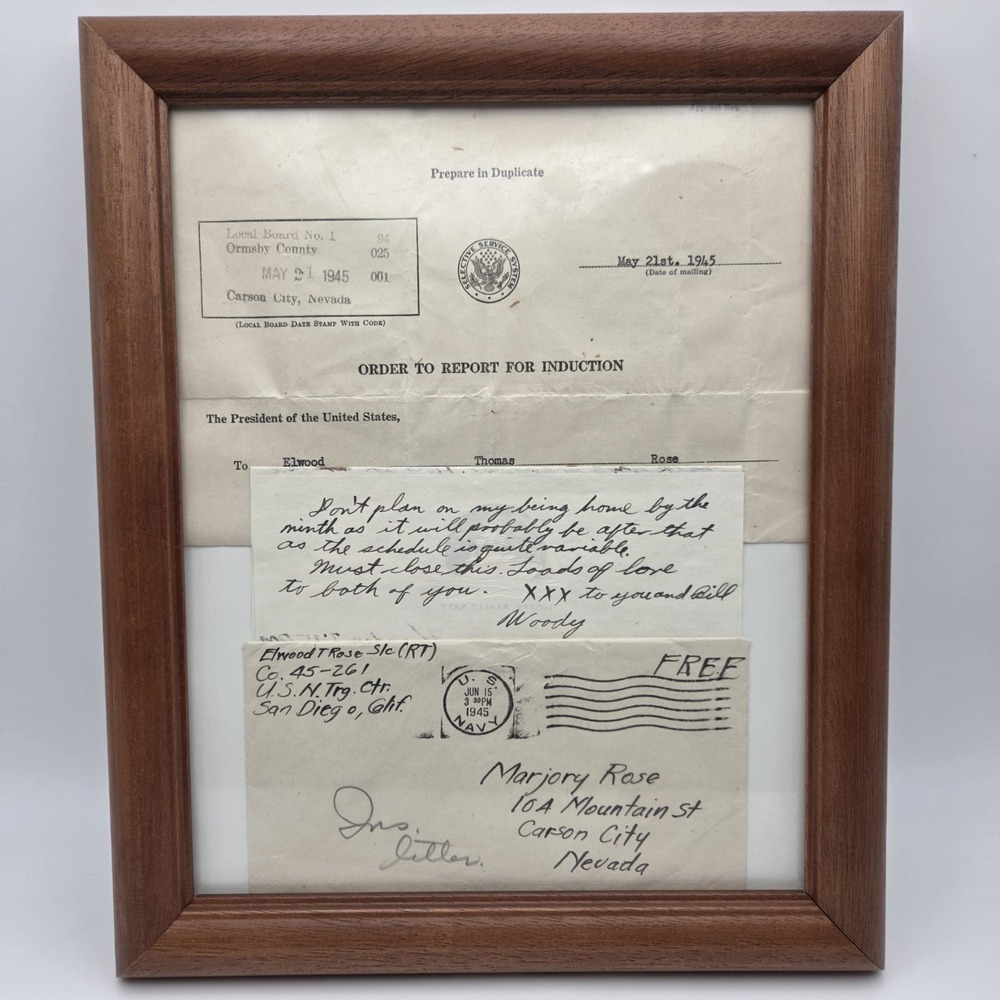 Prepare in Duplicate
Local Board No. 1 94
Ormsby County 025
MAY 21 1945 001
Carson City, Nevada
(LOCAL BOARD DATE STAMP WITH CODE)
SELECTIVE SERVICE SYSTEM
May 21st. 1945
(Date of mailing)
ORDER TO REPORT FOR INDUCTION
The President of the United States,
To Elwood Thomas Rose
Don't plan on my being home by the
ninth as it will probably be after that
as the schedule is quite variable.
Must close this. Loads of love
to both of you. XXX to you and Bill
Woody
Elwood T Rose S1c (RT)
Co. 45-261
U.S.N. Trg. Ctr.
San Diego, Calif.
U. S.
JUN 15
3 30 PM
1945
NAVY
FREE
Marjory Rose
104 Mountain St
Carson City
Nevada
Ins.
letter.